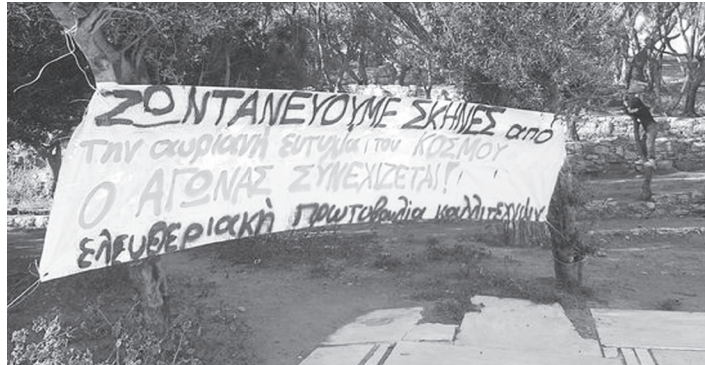 ΖΩΝΤΑΝΕΥΟΥΜΕ ΣΚΗΝΕΣ από
την αυριανή ευτυχία του ΚΟΣΜΟΥ
Ο ΑΓΩΝΑΣ ΣΥΝΕΧΙΖΕΤΑΙ!
ελευθεριακή πρωτοβουλία καλλιτεχνών